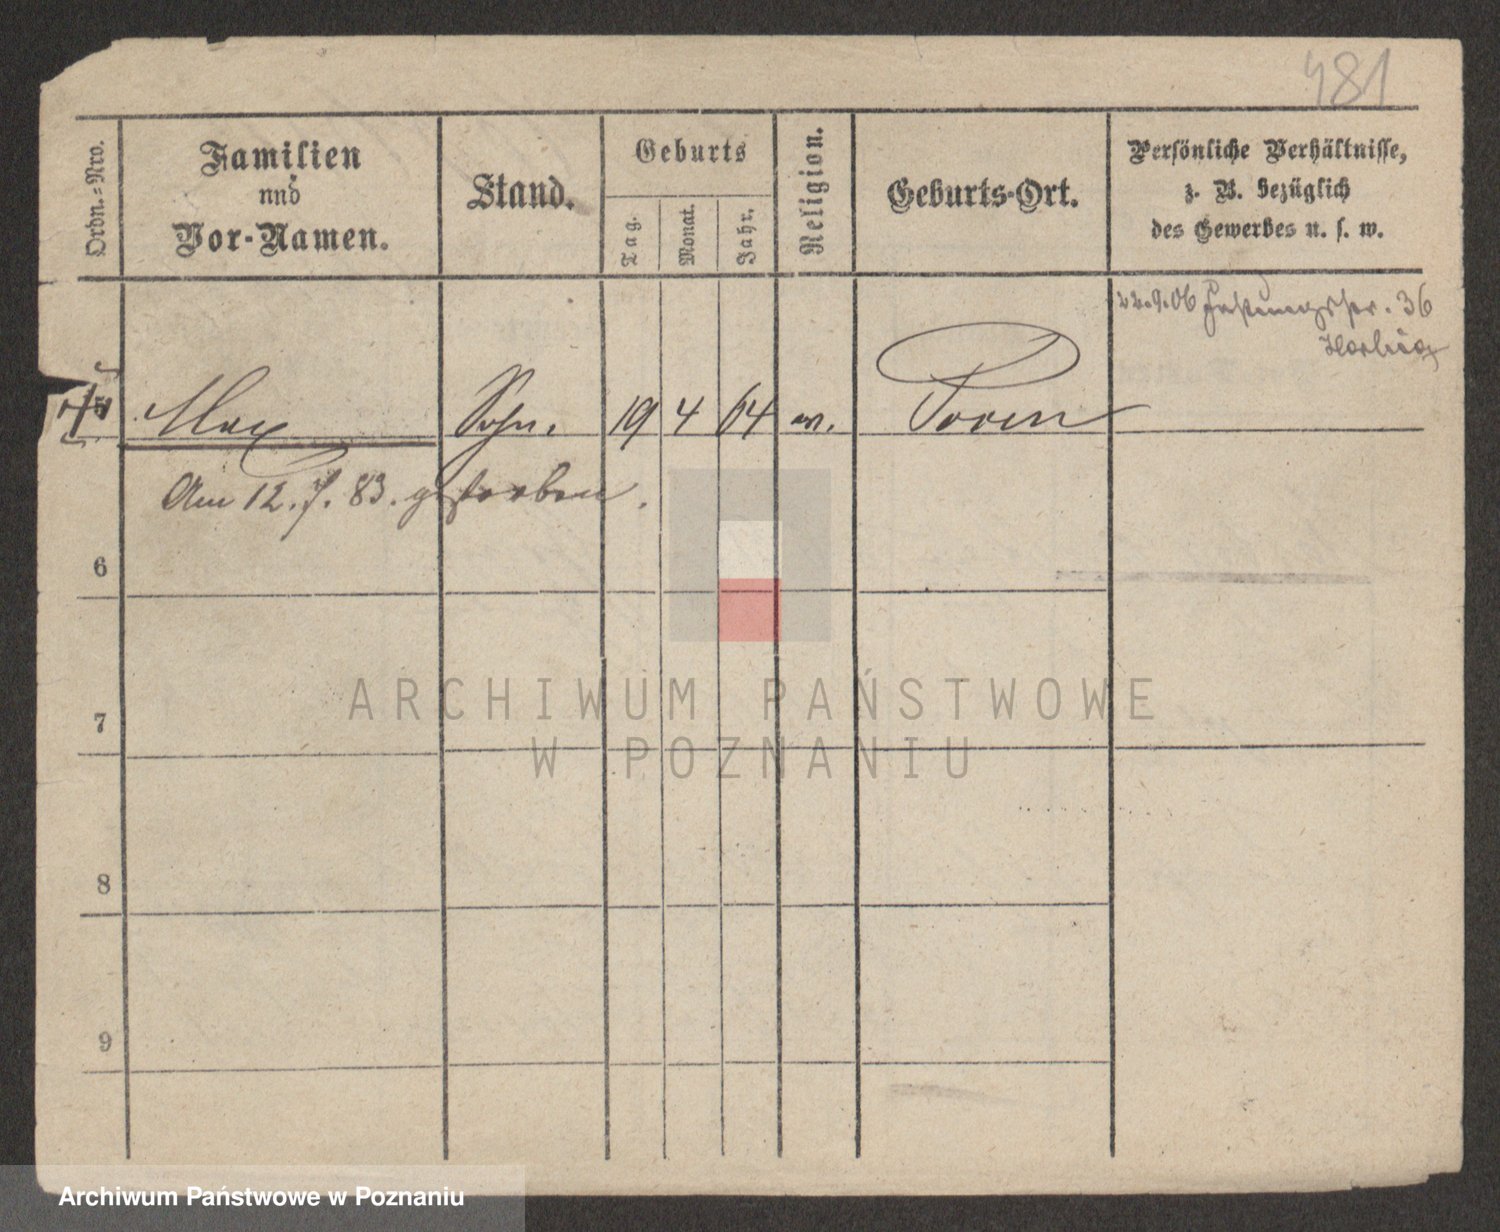 481
Ordn.=Nro.
Familien
und
Vor-Namen.
Stand.
Geburts
Tag.
Monat.
Jahr.
Religion.
Geburts-Ort.
Persönliche Verhältnisse,
z. B. bezüglich
des Gewerbes u. s. w.
22.9.06 Festungsstr. 36
5 Max Sohn. 19 4 64 Posen
Am 12. 7. 83. gestorben.
6
7
8
9
ARCHIWUM PAŃSTWOWE
W POZNANIU
Archiwum Państwowe w Poznaniu